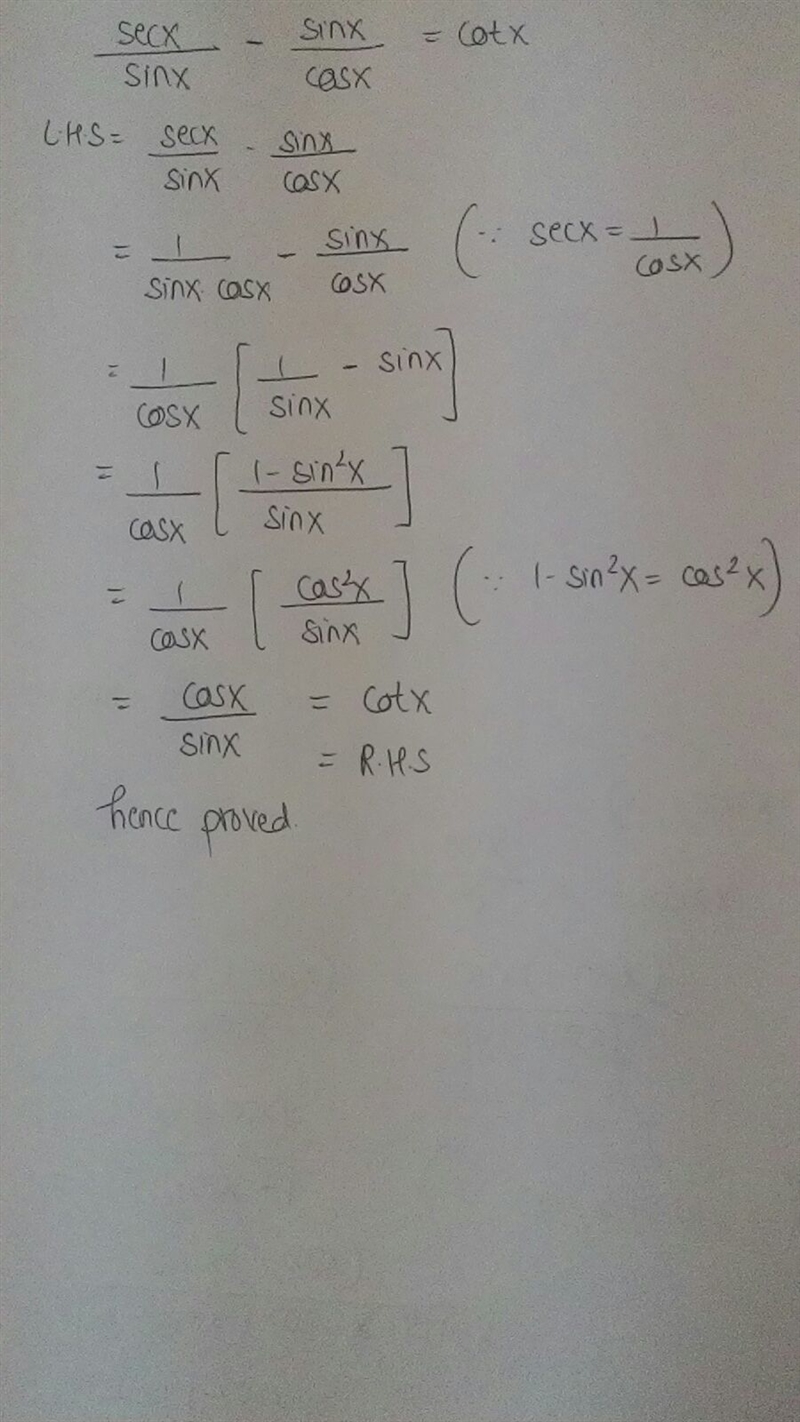 secx/sinx - sinx/cosx = cotx
L.H.S = secx/sinx - sinx/cosx
= 1/sinx·cosx - sinx/cosx (∵ secx = 1/cosx)
= 1/cosx [1/sinx - sinx]
= 1/cosx [1 - sin²x/sinx]
= 1/cosx [cos²x/sinx] (∵ 1 - sin²x = cos²x)
= cosx/sinx = cotx
= R.H.S
hence proved.